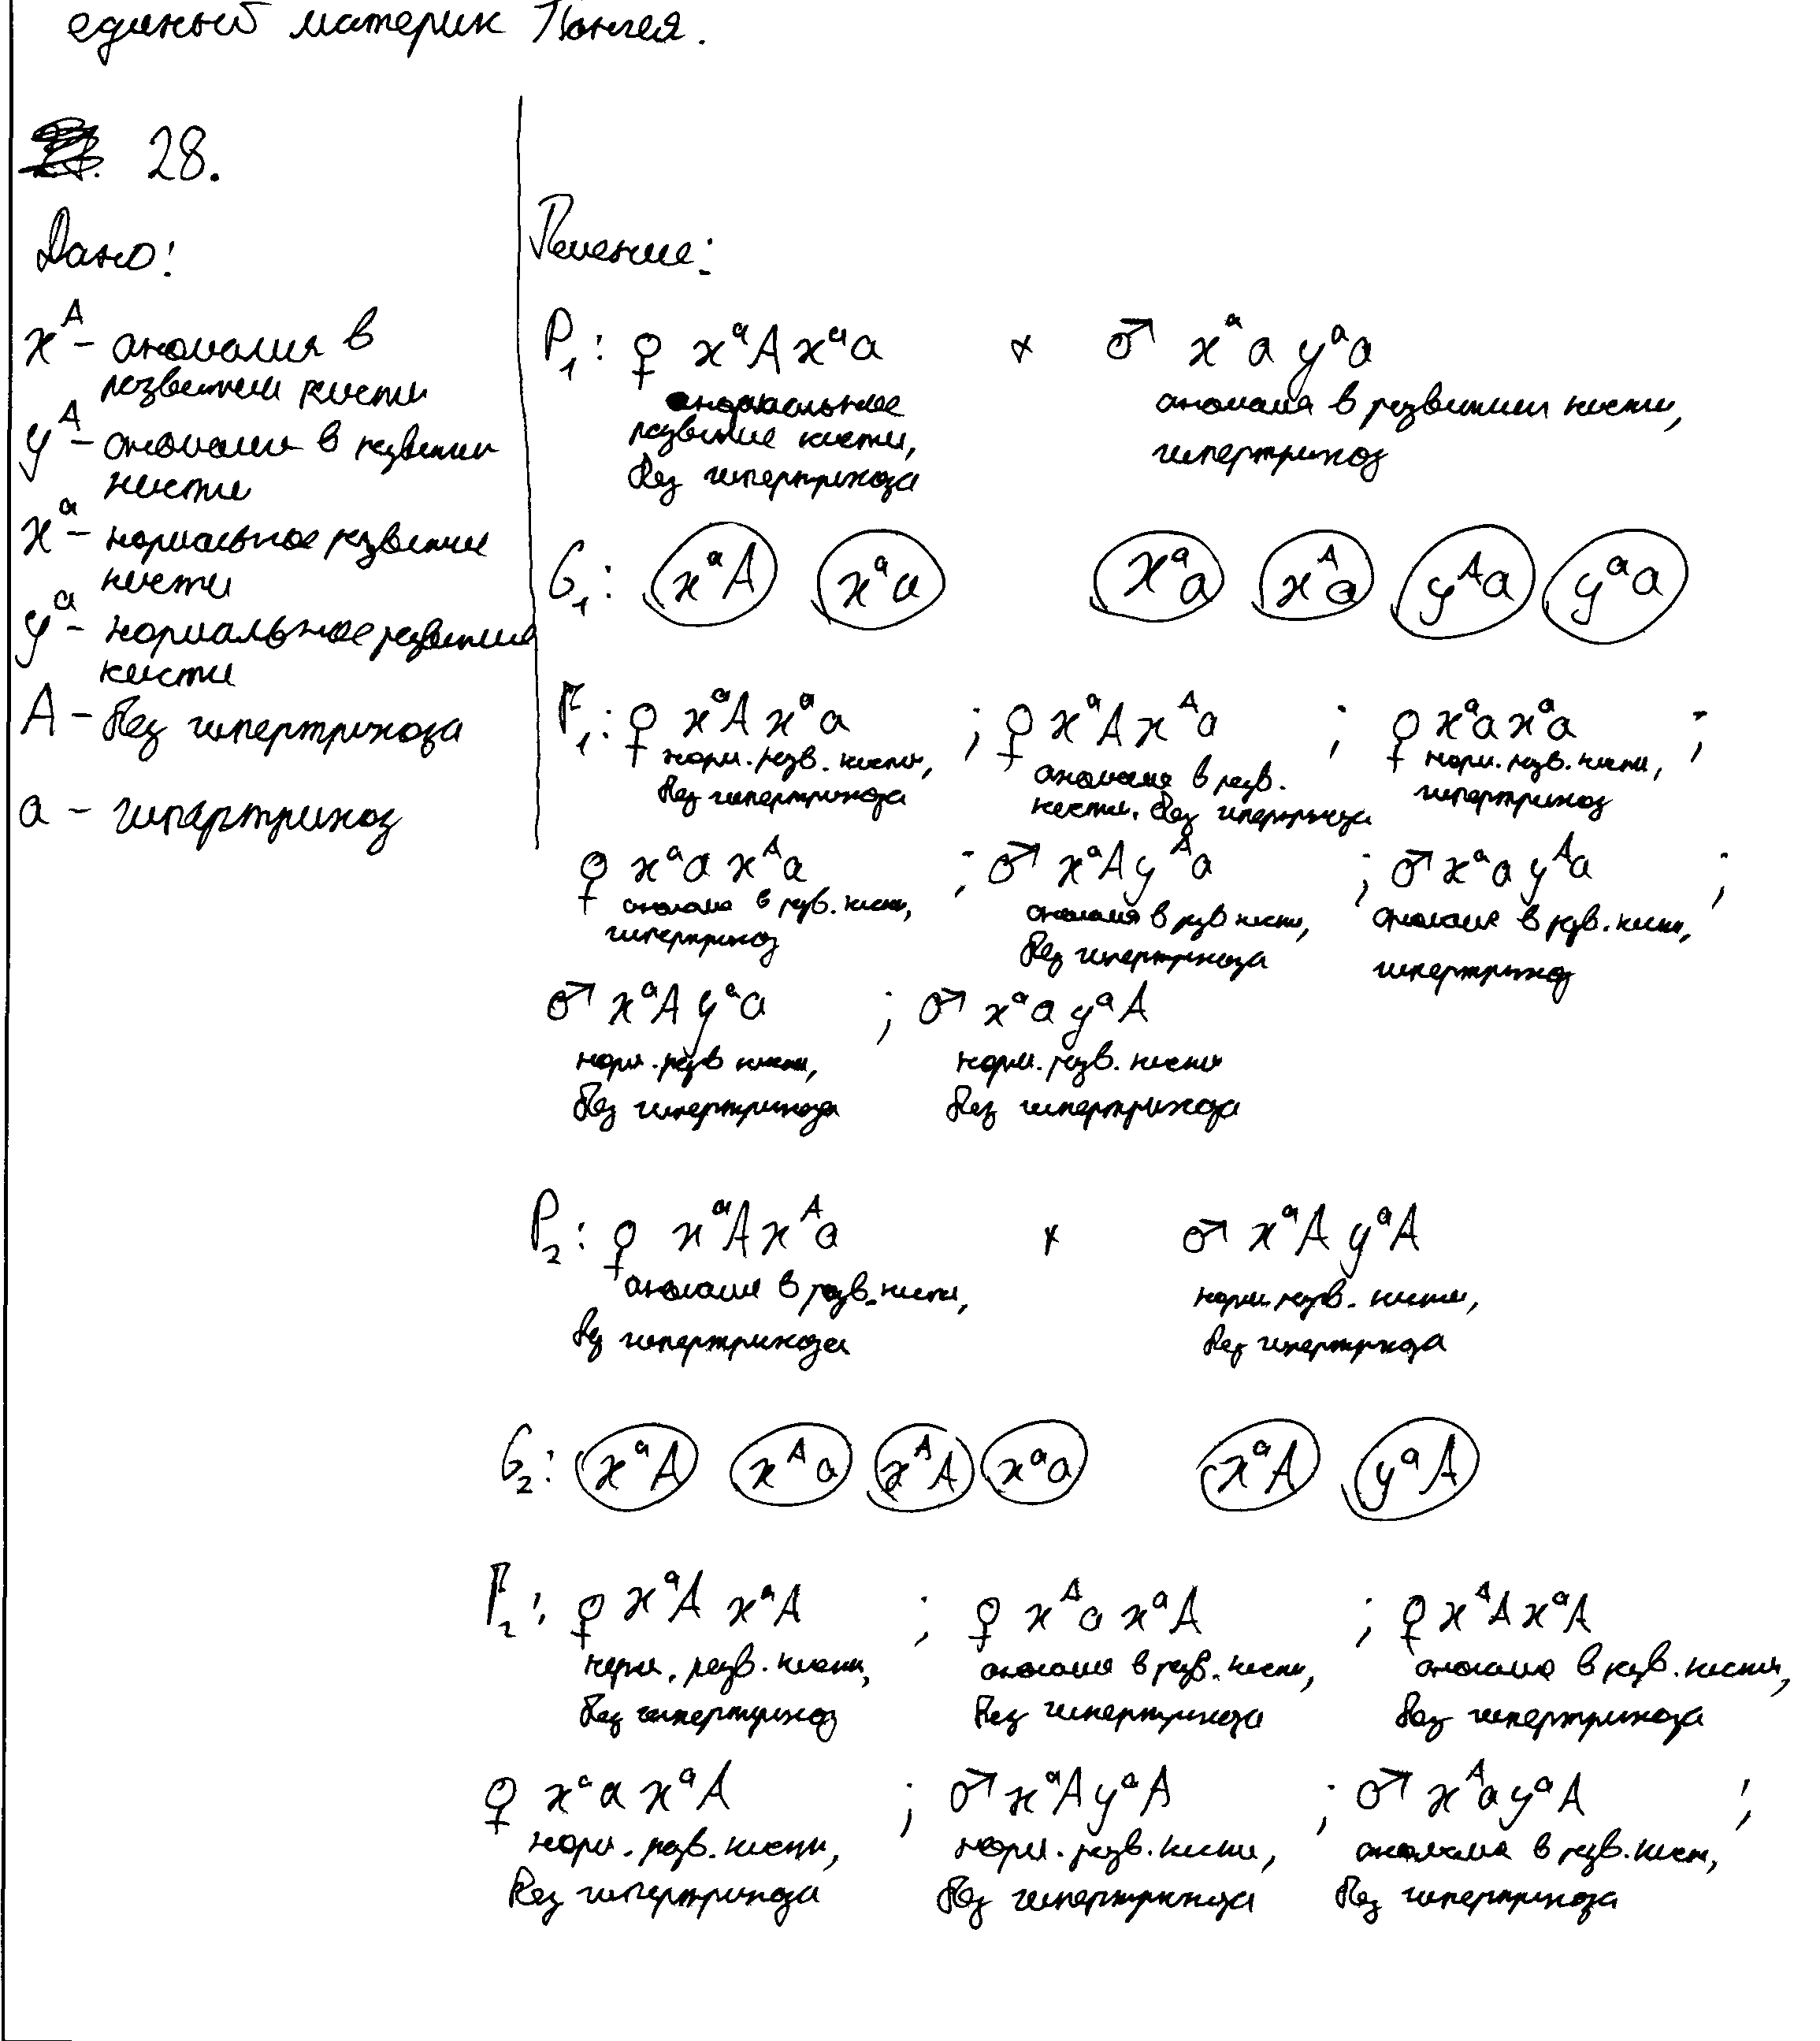 единый материк Пангея.
28.
Дано:
Решение:
xᴬ - аномалия в
развитии кисти
yᴬ - аномалия в развитии
кисти
xᵃ - нормальное развитие
кисти
yᵃ - нормальное развитие
кисти
A - без гипертрихоза
a - гипертрихоз
P₁: ♀ xᵃA xᵃa × ♂ xᵃa yᵃa
нормальное
развитие кисти,
без гипертрихоза
аномалия в развитии кисти,
гипертрихоз
G₁: xᵃA xᵃa xᵃa xᴬa yᴬa yᵃa
F₁: ♀ xᵃA xᵃa ; ♀ xᵃA xᴬa ; ♀ xᵃa xᵃa ;
норм. разв. кисти,
без гипертрихоза
аномалия в разв.
кисти, без гипертрихоза
норм. разв. кисти,
гипертрихоз
♀ xᵃa xᴬa ; ♂ xᵃA yᴬa ; ♂ xᵃa yᴬa ;
аномалия в разв. кисти,
гипертрихоз
аномалия в разв кисти,
без гипертрихоза
аномалия в разв. кисти,
гипертрихоз
♂ xᵃA yᵃa ; ♂ xᵃa yᵃA
норм. разв кисти,
без гипертрихоза
норм. разв. кисти
без гипертрихоза
P₂: ♀ xᵃA xᴬa × ♂ xᵃA yᵃA
аномалия в разв. кисти,
без гипертрихоза
норм. разв. кисти,
без гипертрихоза
G₂: xᵃA xᴬa xᴬA xᵃa xᵃA yᵃA
F₂: ♀ xᵃA xᵃA ; ♀ xᴬa xᵃA ; ♀ xᴬA xᵃA
норм. разв. кисти,
без гипертрихоз
аномалия в разв. кисти,
без гипертрихоза
аномалия в разв. кисти,
без гипертрихоза
♀ xᵃa xᵃA ; ♂ xᵃA yᵃA ; ♂ xᴬa yᵃA ;
норм. разв. кисти,
без гипертрихоза
норм. разв. кисти,
без гипертрихоза
аномалия в разв. кист,
без гипертрихоза